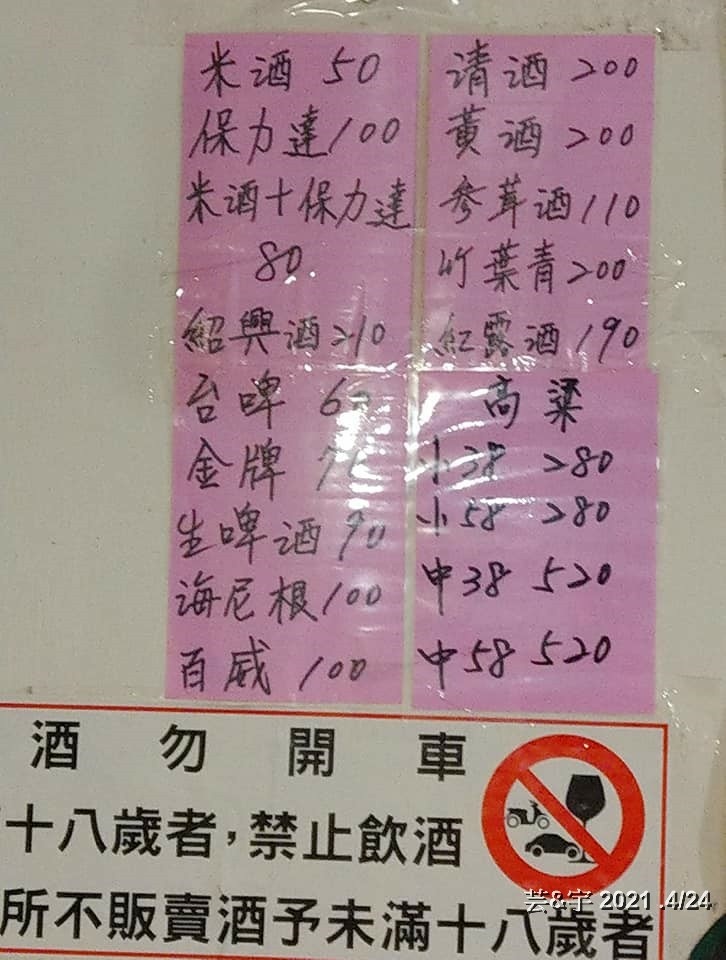 米酒 50
保力達 100
米酒+保力達
80
紹興酒 210
台啤 60
金牌
生啤酒 90
海尼根 100
百威 100
清酒 200
黃酒 200
參茸酒 110
竹葉青 200
紅露酒 190
高粱
小38 280
小58 280
中38 520
中58 520
酒勿開車
十八歲者，禁止飲酒
所不販賣酒予未滿十八歲者
芸&宇 2021 .4/24